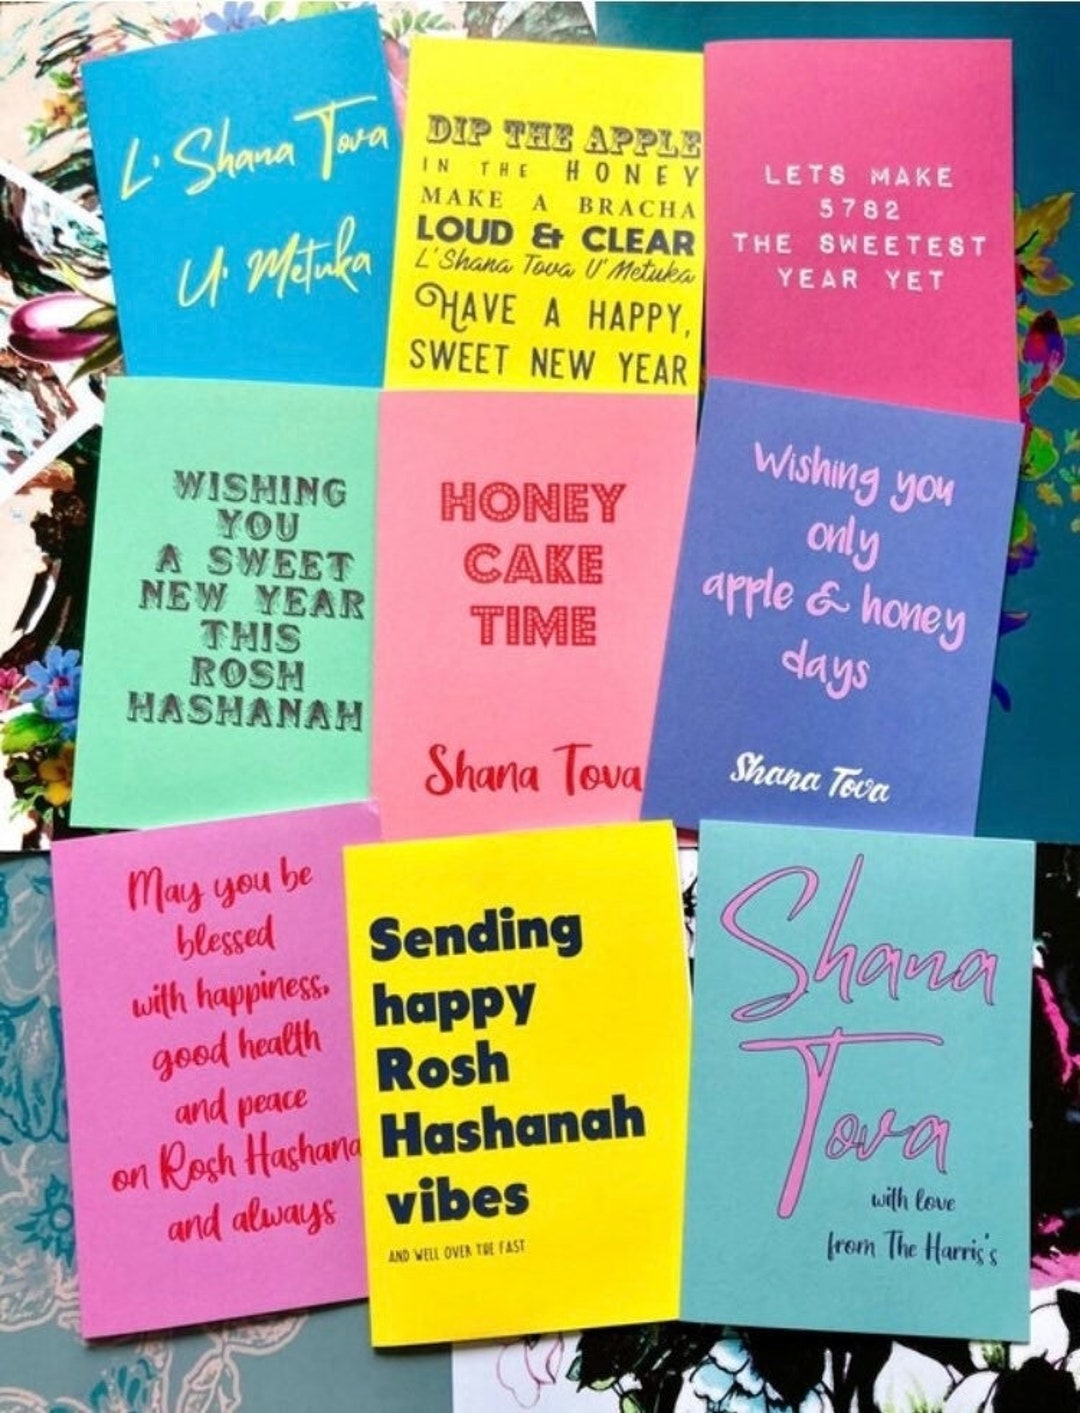 L' Shana Tova
U' Metuka
DIP THE APPLE
IN THE HONEY
MAKE A BRACHA
LOUD & CLEAR
L'Shana Tova U'Metuka
HAVE A HAPPY,
SWEET NEW YEAR
LETS MAKE
5782
THE SWEETEST
YEAR YET
WISHING
YOU
A SWEET
NEW YEAR
THIS
ROSH
HASHANAH
HONEY
CAKE
TIME
Shana Tova
Wishing you
only
apple & honey
days
Shana Tova
May you be
blessed
with happiness,
good health
and peace
on Rosh Hashana
and always
Sending
happy
Rosh
Hashanah
vibes
AND WELL OVER THE FAST
Shana
Tova
with love
from The Harris's